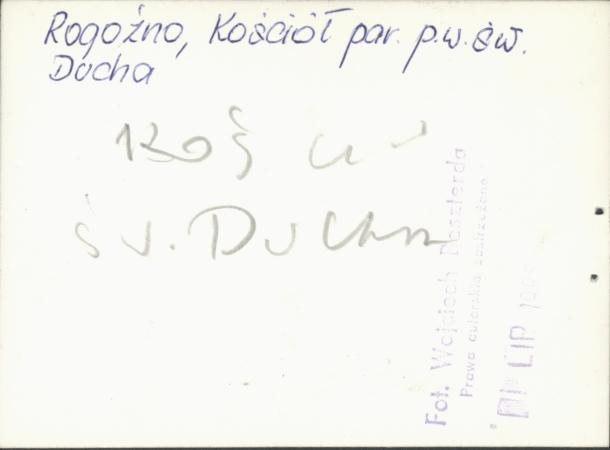 Rogoźno, Kościół par. p.w. św.
Ducha
św. Ducha
Fot. Wojciech Beszterda
Prawa autorskie zastrzeżone
LIP